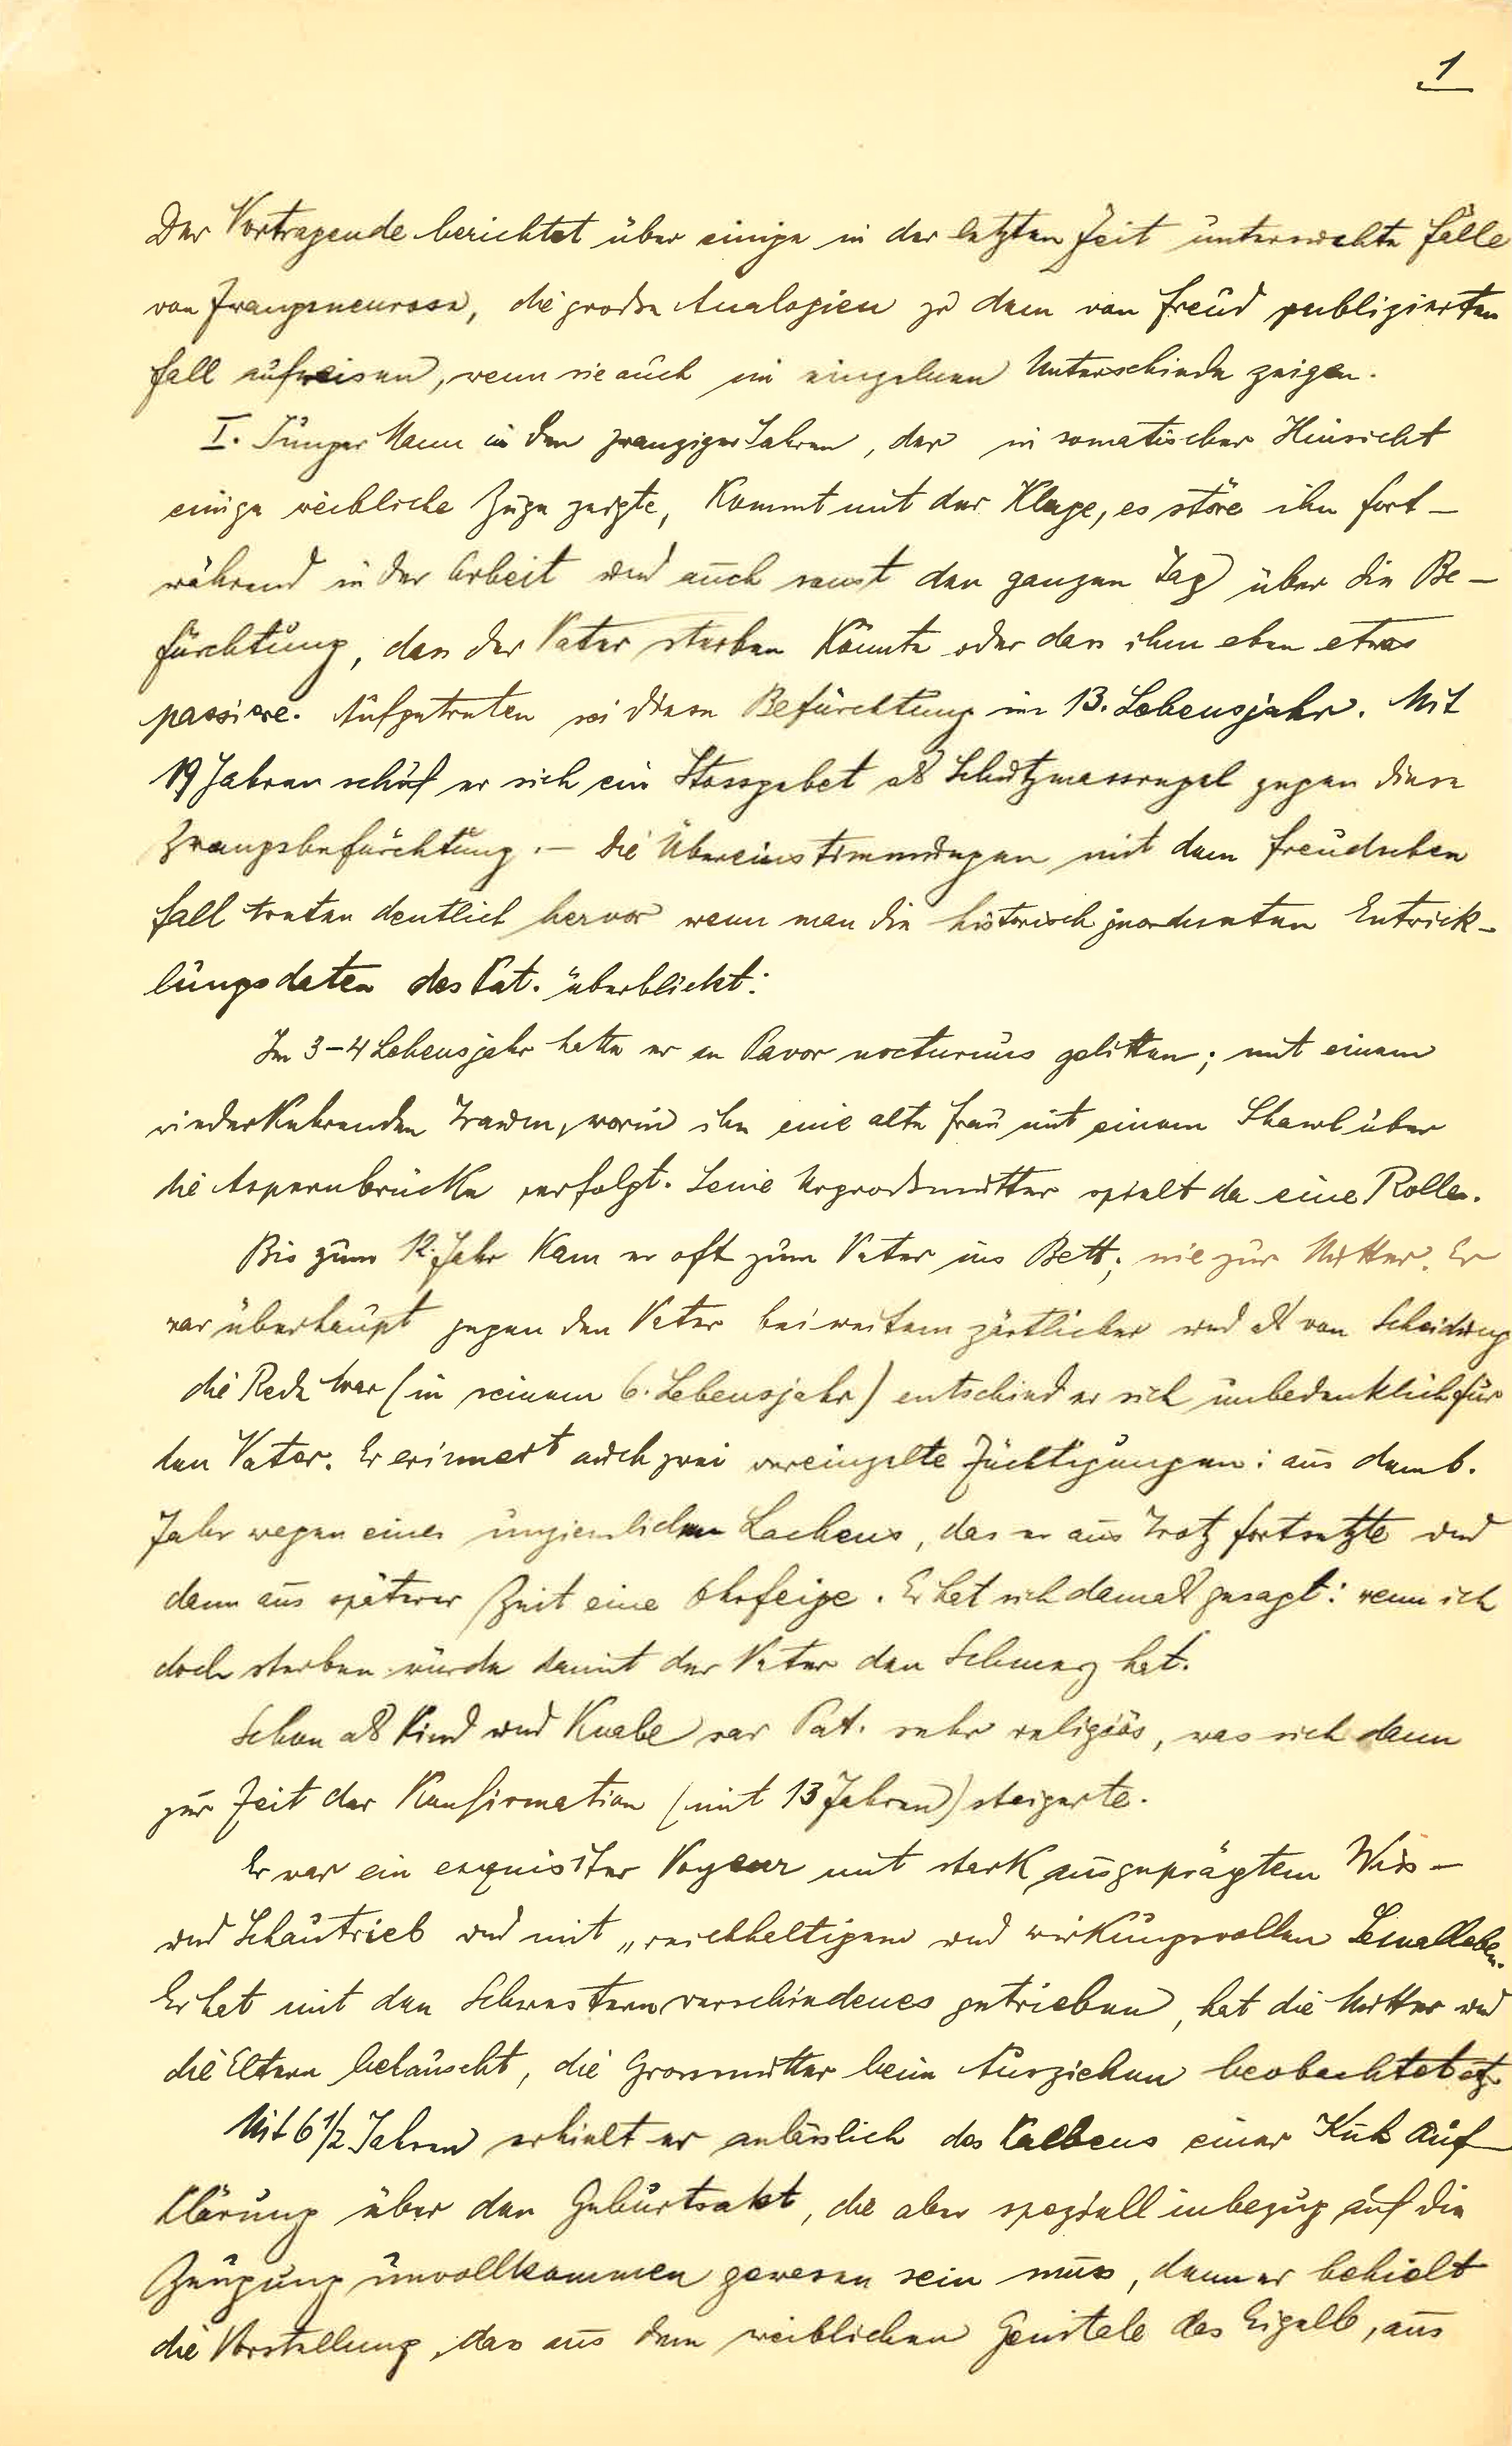 1
Der Vortragende berichtet über einige in der letzten Zeit untersuchte Fälle
von Zwangsneurose, die grosse Analogien zu dem von Freud publizierten
Fall aufweisen, wenn sie auch im einzelnen Unterschiede zeigen.
I. Junger Mann in den zwanziger Jahren, der in somatischer Hinsicht
einige weibliche Züge zeigte, kommt mit der Klage, es störe ihn fort-
während in der Arbeit und auch sonst den ganzen Tag über die Be-
fürchtung, dass der Vater sterben könnte oder dass ihm eben etwas
passiere. Aufgetreten sei diese Befürchtung im 13. Lebensjahr. Mit
19 Jahren schuf er sich ein Stossgebet als Schutzmassregel gegen diese
Zwangsbefürchtung. – Die Übereinstimmungen mit dem Freudschen
Fall treten deutlich hervor wenn man die historisch geordneten Entwick-
lungsdaten des Pat. überblickt:
Im 3-4 Lebensjahr hatte er an Pavor nocturnus gelitten; mit einem
wiederkehrenden Traum, worin ihn eine alte Frau mit einem Shawl über
die Aspernbrücke verfolgt. Seine Urgrossmutter spielt da eine Rolle.
Bis zum 12. Jahr kam er oft zum Vater ins Bett; nie zur Mutter. Er
war überhaupt gegen den Vater bei weitem zärtlicher und als von Scheidung
die Rede war (in seinem 6. Lebensjahr) entschied er sich unbedenklich für
den Vater. Er erinnert auch zwei vereinzelte Züchtigungen: aus dem 6.
Jahr wegen eines unziemlichen Lachens, das er aus Trotz fortsetzte und
dann aus späterer Zeit eine Ohrfeige. Er hat sich damals gesagt: wenn ich
doch sterben würde damit der Vater den Schmerz hat.
Schon als Kind und Knabe war Pat. sehr religiös, was sich dann
zur Zeit der Konfirmation (mit 13 Jahren) steigerte.
Er war ein exquisiter Voyeur mit stark ausgeprägtem Wiss-
und Schautrieb und mit „reichhaltigem und wirkungsvollen Sexualleben.
Er hat mit den Schwestern verschiedenes getrieben, hat die Mutter und
die Eltern belauscht, die Grossmutter beim Ausziehen beobachtet etz.
Mit 6 1/2 Jahren erhielt er anlässlich des Kalbens einer Kuh Auf-
klärung über den Geburtsakt, die aber speziell inbezug auf die
Zeugung unvollkommen gewesen sein muss, denn er behielt
die Vorstellung, dass aus dem weiblichen Genitale das Eigelb, aus